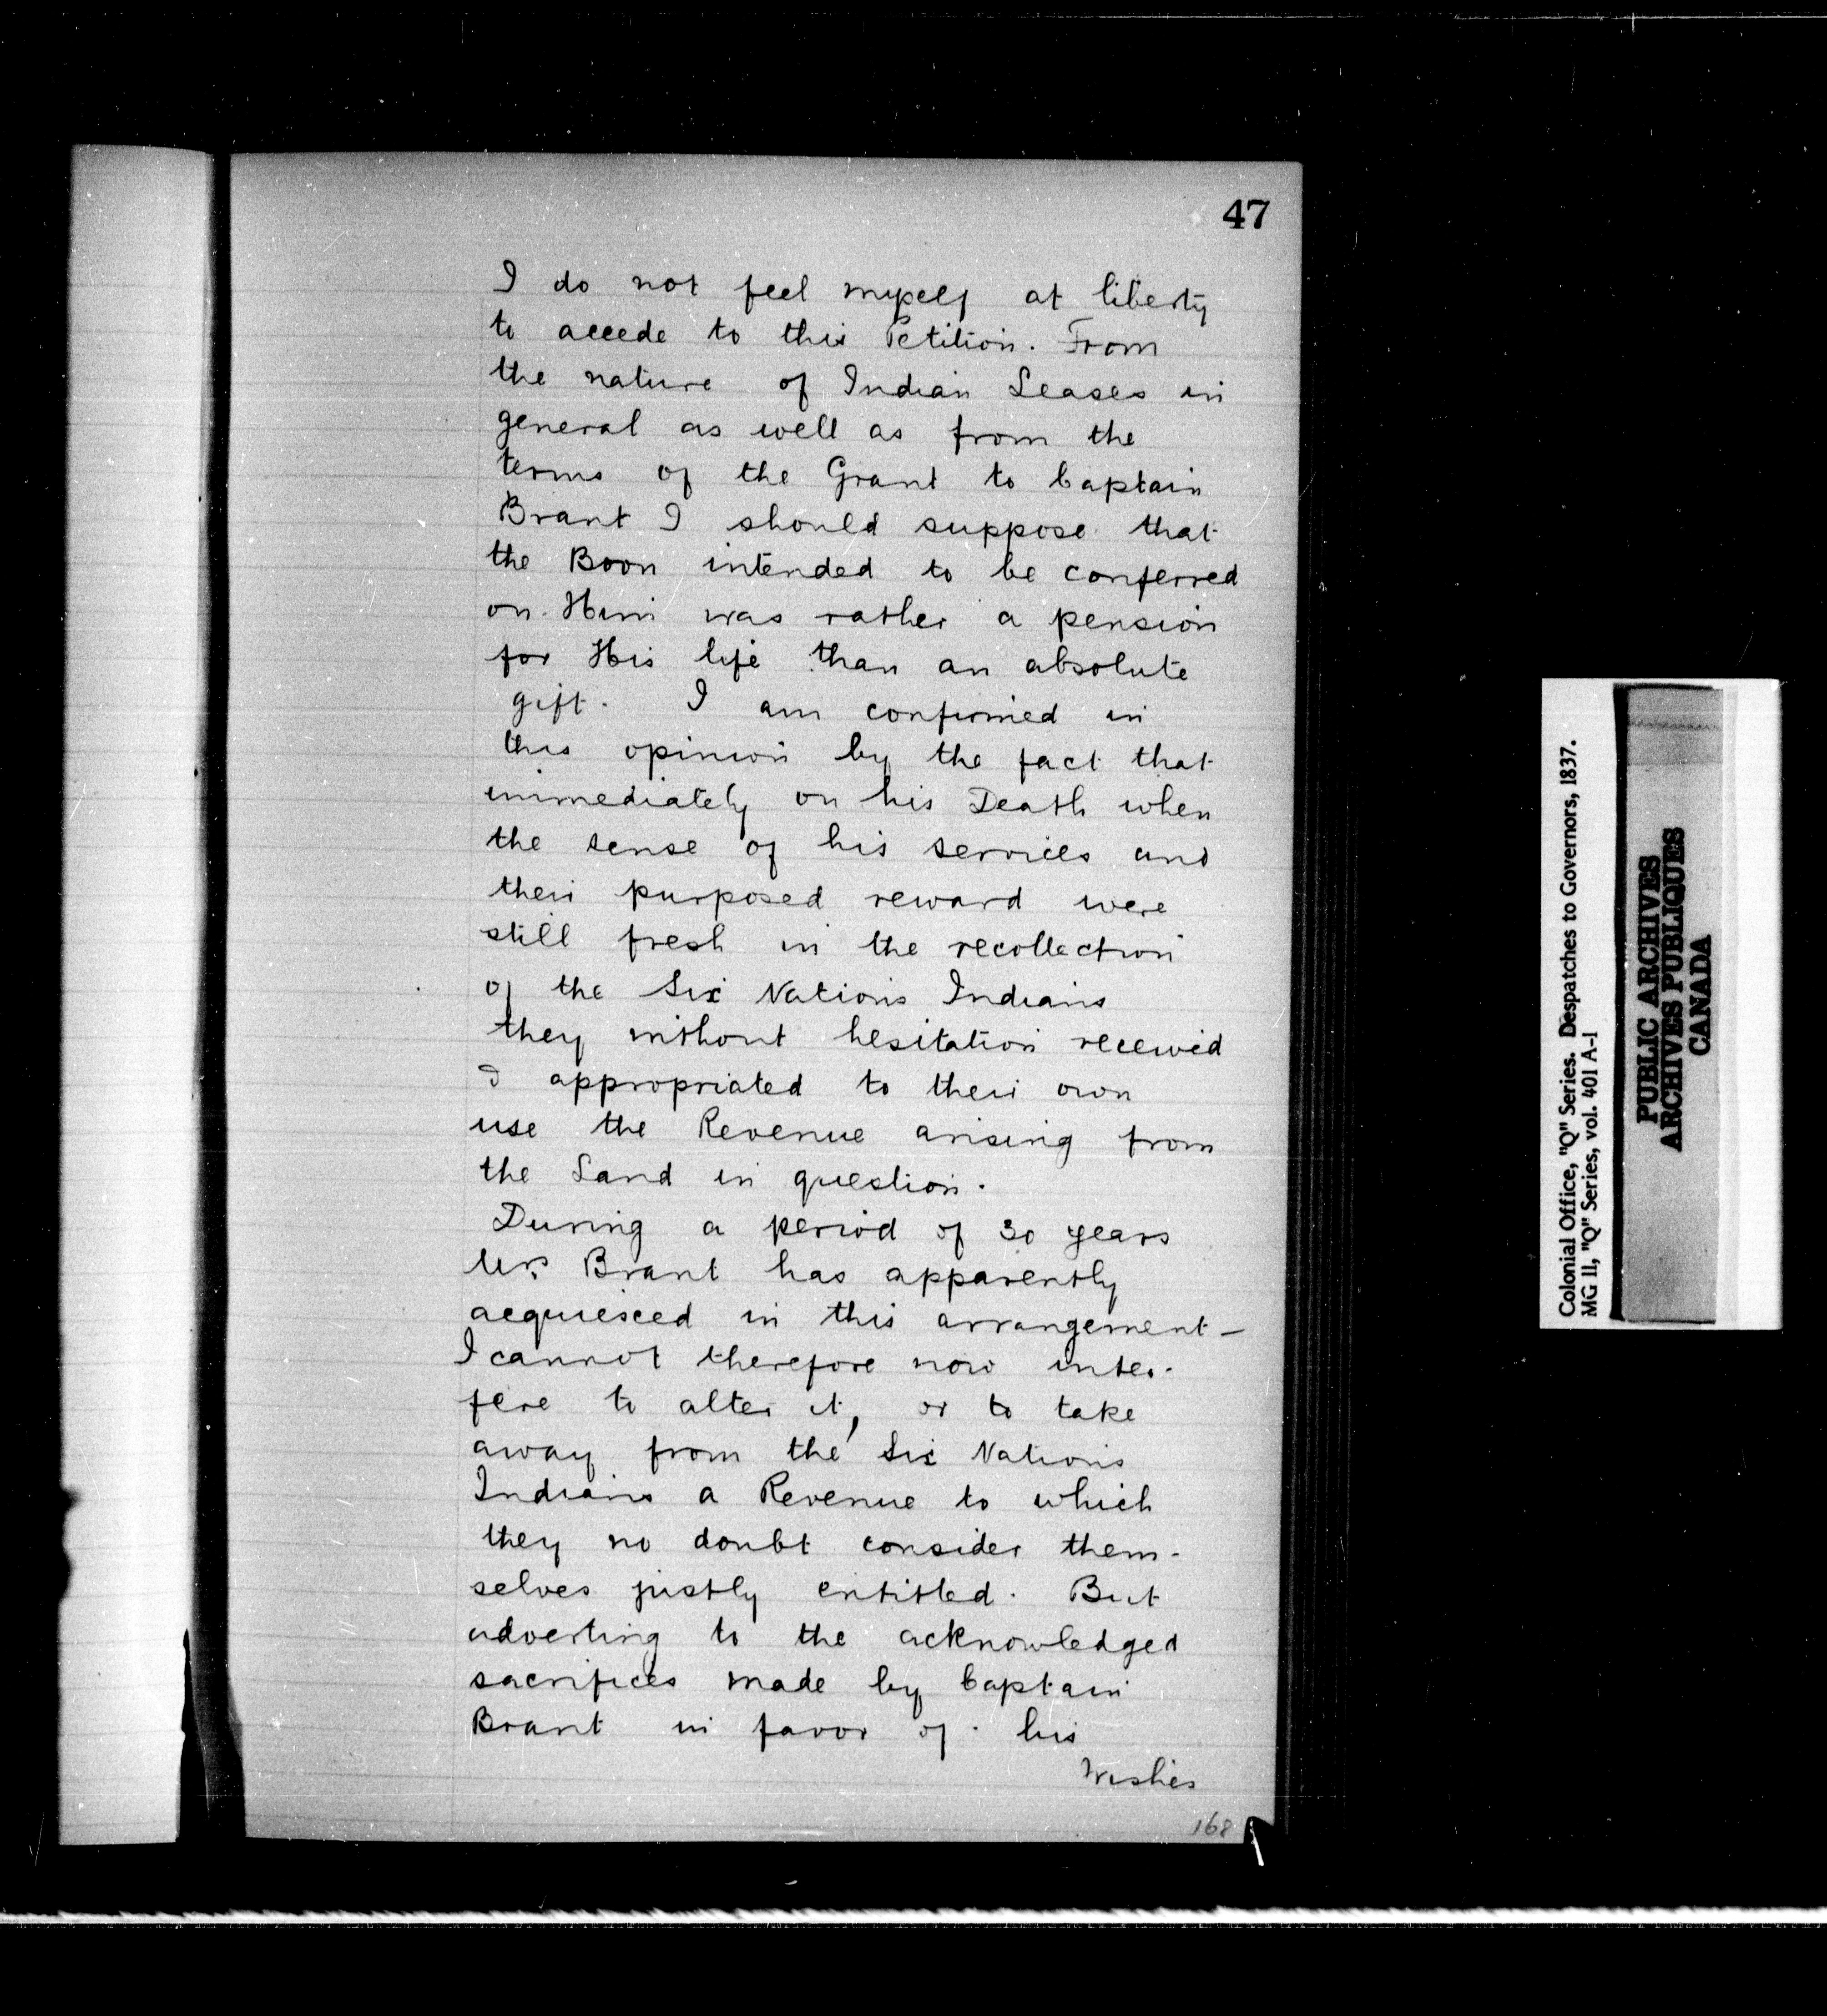 47
I do not feel myself at liberty
to accede to this Petition. From
the nature of Indian Leases in
general as well as from the
terms of the Grant to Captain
Brant I should suppose that
the Boon intended to be conferred
on Him was rather a pension
for His life than an absolute
gift. I am confirmed in
this opinion by the fact that
immediately on his Death when
the sense of his services and
their purposed reward were
still fresh in the recollection
of the Six Nations Indians
they without hesitation received
& appropriated to their own
use the Revenue arising from
the Land in question.
During a period of 30 years
Mrs. Brant has apparently
acquiesced in this arrangement—
I cannot therefore now inter-
fere to alter it, or to take
away from the Six Nations
Indians a Revenue to which
they no doubt consider them-
selves justly entitled. But
adverting to the acknowledged
sacrifices made by Captain
Brant in favor of his
Wishes
168
Colonial Office, "Q" Series. Despatches to Governors, 1837.
MG 11, "Q" Series, vol. 401 A-1
PUBLIC ARCHIVES
ARCHIVES PUBLIQUES
CANADA